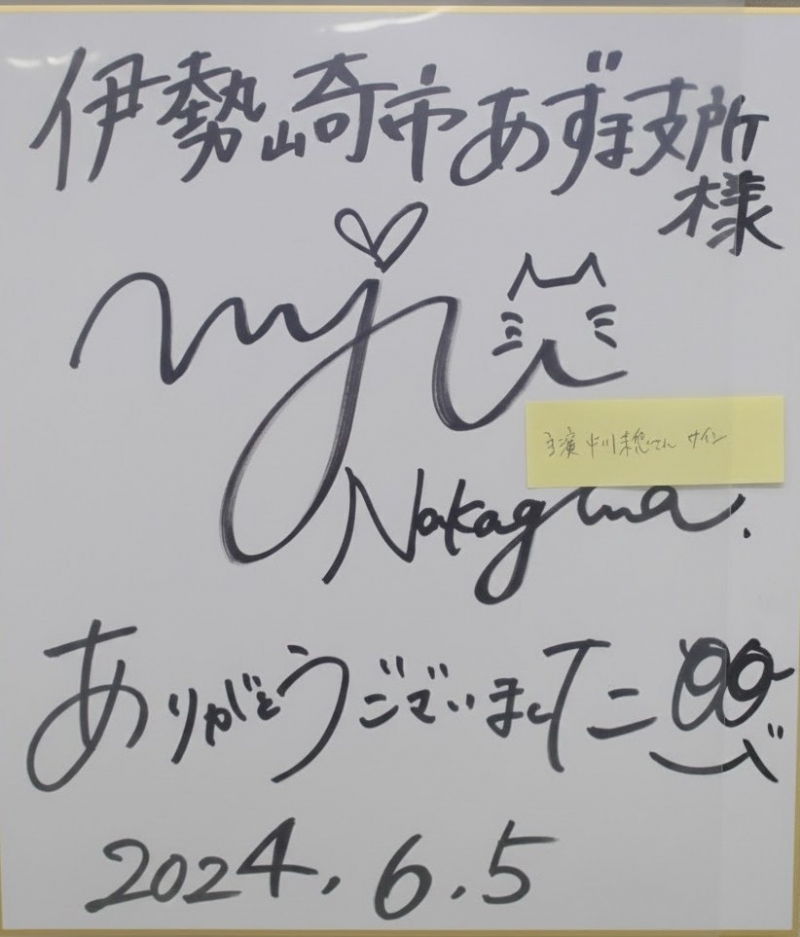 伊勢崎市あずま支所
様
Nakagawa.
主演 中川未悠さん サイン
ありがとうございました
2024.6.5